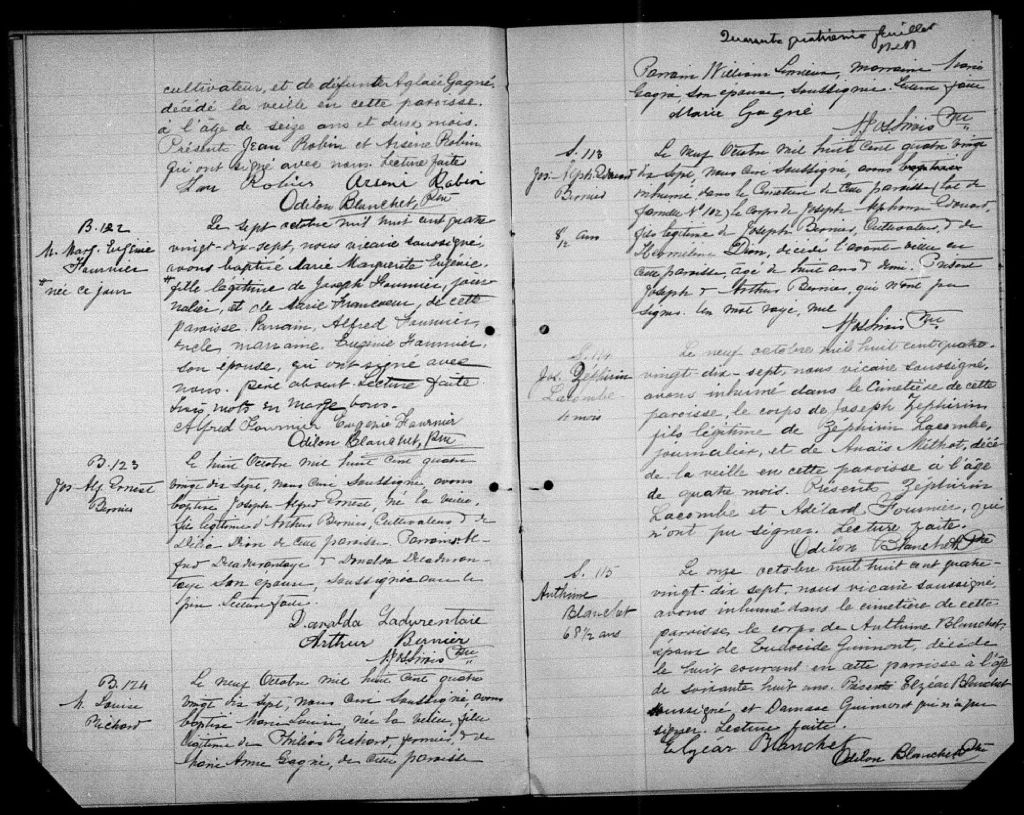 cultivateur, et de défunte Aglaée Gagné,
décédé la veille en cette paroisse.
à l'âge de seize ans et deux mois.
Présents Jean Robin et Arsène Robin
qui ont signé avec nous. Lecture faite
Jean Robin Arsene Robin
Odilon Blanchet, Ptre
B. 122
M. Marg. Eugénie
Fournier
# née ce jour
Le sept octobre mil huit cent quatre
vingt-dix-sept, nous vicaire soussigné,
avons baptisé Marie Marguerite Eugénie,
# fille légitime de Joseph Fournier, jour
nalier, et de Marie Francoeur, de cette
paroisse. Parrain, Alfred Fournier,
oncle, marraine Eugénie Fournier,
son épouse, qui ont signé avec
nous. père absent Lecture faite
trois mots en marge bons.
Alfred Fournier Eugenie Fournier
Odilon Blanchet, Ptre
B. 123
Jos Alf. Ernest
Bernier
Le huit Octobre mil huit cent quatre
vingt dix sept, nous curé soussigné, avons
baptisé Joseph Alfred Ernest, né la veille,
fils légitime d'Arthur Bernier, Cultivateur & de
Délia Dion de cette paroisse. Parrain
son épouse, soussignés avec le
père Lecture faite.
Arthur Bernier
Ptre
B. 124
M. Louise
Richard
Le neuf Octobre mil huit cent quatre
vingt dix sept, nous curé soussigné avons
baptisé Marie Louise, née la veille, fille
légitime de Philias Richard, fermier, & de
Marie Anne Gagné, de cette paroisse
Quarante quatrième feuillet
Parrain William Lemieux, marraine Marie
Gagné son épouse soussignée. Lecture faite
Marie Gagné
Ptre
S. 113
Jos. Alph. Edouard
Bernier
8 1/2 ans
Le neuf Octobre mil huit cent quatre vingt
dix sept, nous curé soussigné, avons
inhumé dans le Cimetière de cette paroisse (lot de
famille No 102) le corps de Joseph Alphonse Edouard,
fils légitime de Joseph Bernier, Cultivateur, & de
Dion, décédé l'avant-veille en
cette paroisse, agé de huit ans & demi. Présents
Joseph & Arthur Bernier, qui n'ont pu
signer. Un mot rayé nul
Ptre
S. 114
Jos. Zéphirin
Lacombe
4 mois
Le neuf octobre mil huit cent quatre-
vingt-dix-sept, nous vicaire soussigné,
avons inhumé dans le Cimetière de cette
paroisse, le corps de Joseph Zéphirin,
fils légitime de Zéphirin Lacombe,
journalier, et de Anaïs Méthot, décé
dé la veille en cette paroisse à l'âge
de quatre mois. Présents Zéphirin
Lacombe et Adélard Fournier, qui
n'ont pu signer. Lecture faite.
Odilon Blanchet Ptre
S. 115
Anthime
Blanchet
68 1/2 ans
Le onze octobre mil huit cent quatre-
vingt-dix sept, nous vicaire soussigné,
avons inhumé dans le cimetière de cette
paroisse, le corps de Anthime Blanchet,
époux de Eudoxide Guimont, décédé
le huit courant en cette paroisse à l'âge
de soixante huit ans. Présents Elzéar Blanchet
soussigné et Damase Guimont qui n'a pu
signer. Lecture faite.
Elzear Blanchet
Odilon Blanchet Ptre